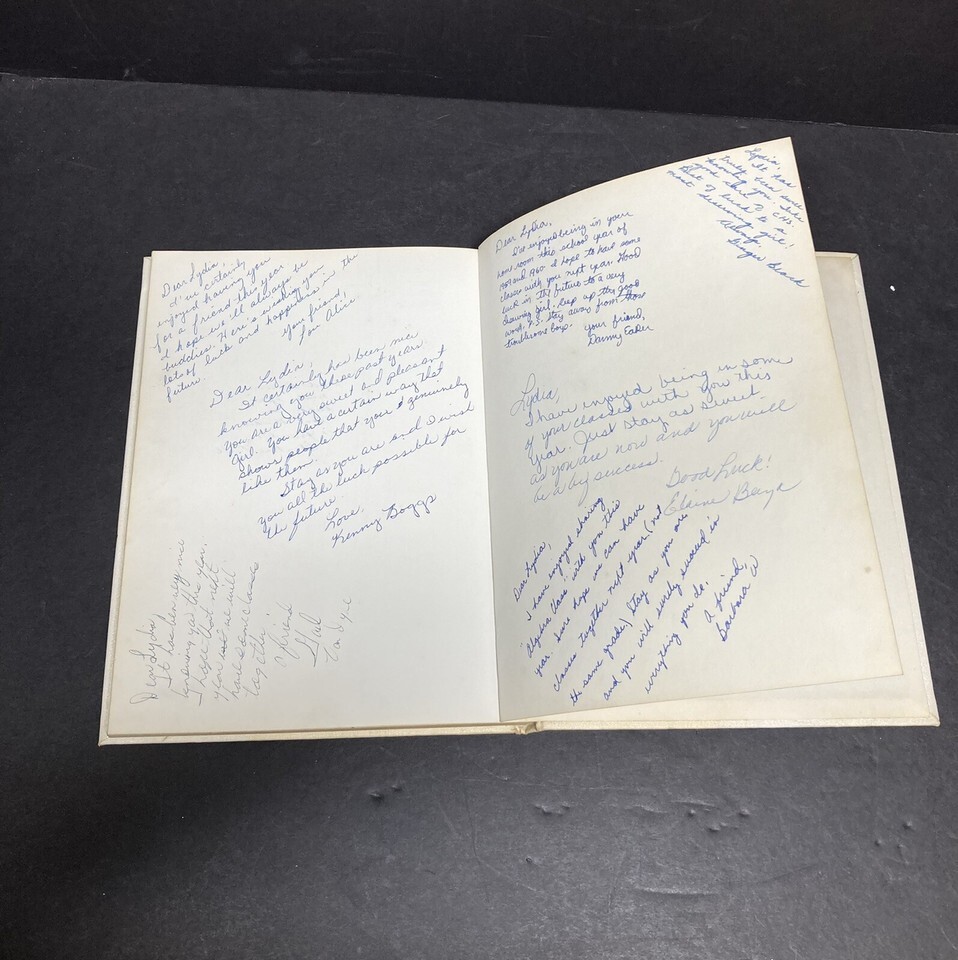 Dear Lydia,
I've certainly
enjoyed having you
for a friend this year.
I hope we'll always be
buddies. Here's wishing you
lots of luck and happiness in the
future.
Your friend,
Lou Alice
Dear Lydia,
It certainly has been nice
knowing you these past years.
You are a very sweet and pleasant
girl. You have a certain way that
shows people that you genuinely
like them.
Stay as you are and I wish
you all the luck possible for
the future.
Love
Kenny Boggs
Dear Lydia
It has been very nice
knowing you this year.
I hope that next
year we will
have some classes
together.
a friend
Dear Lydia,
I've enjoyed being in your
home room this school year of
1959 and 1960. I hope to have some
classes with you next year. Good
luck in the future to a very
charming girl. Keep up the good
work. P.S. stay away from those
troublesome boys.
Your friend,
Danny
Lydia,
It has
truly been nice
knowing you. Take
good care of CHS
that I wish to a
most deserving girl!
Ginger
Lydia,
I have enjoyed being in some
of your classes with you this
year. Just stay as sweet
as you are now and you will
be a big success.
Good Luck!
Elaine
Dear Lydia,
I have enjoyed sharing
"Algebra Class" with you this
year. Sure hope we can have
classes together next year (not
the same grade.) Stay as you are
and you will surely succeed in
everything you do.
A friend,
Barbara W